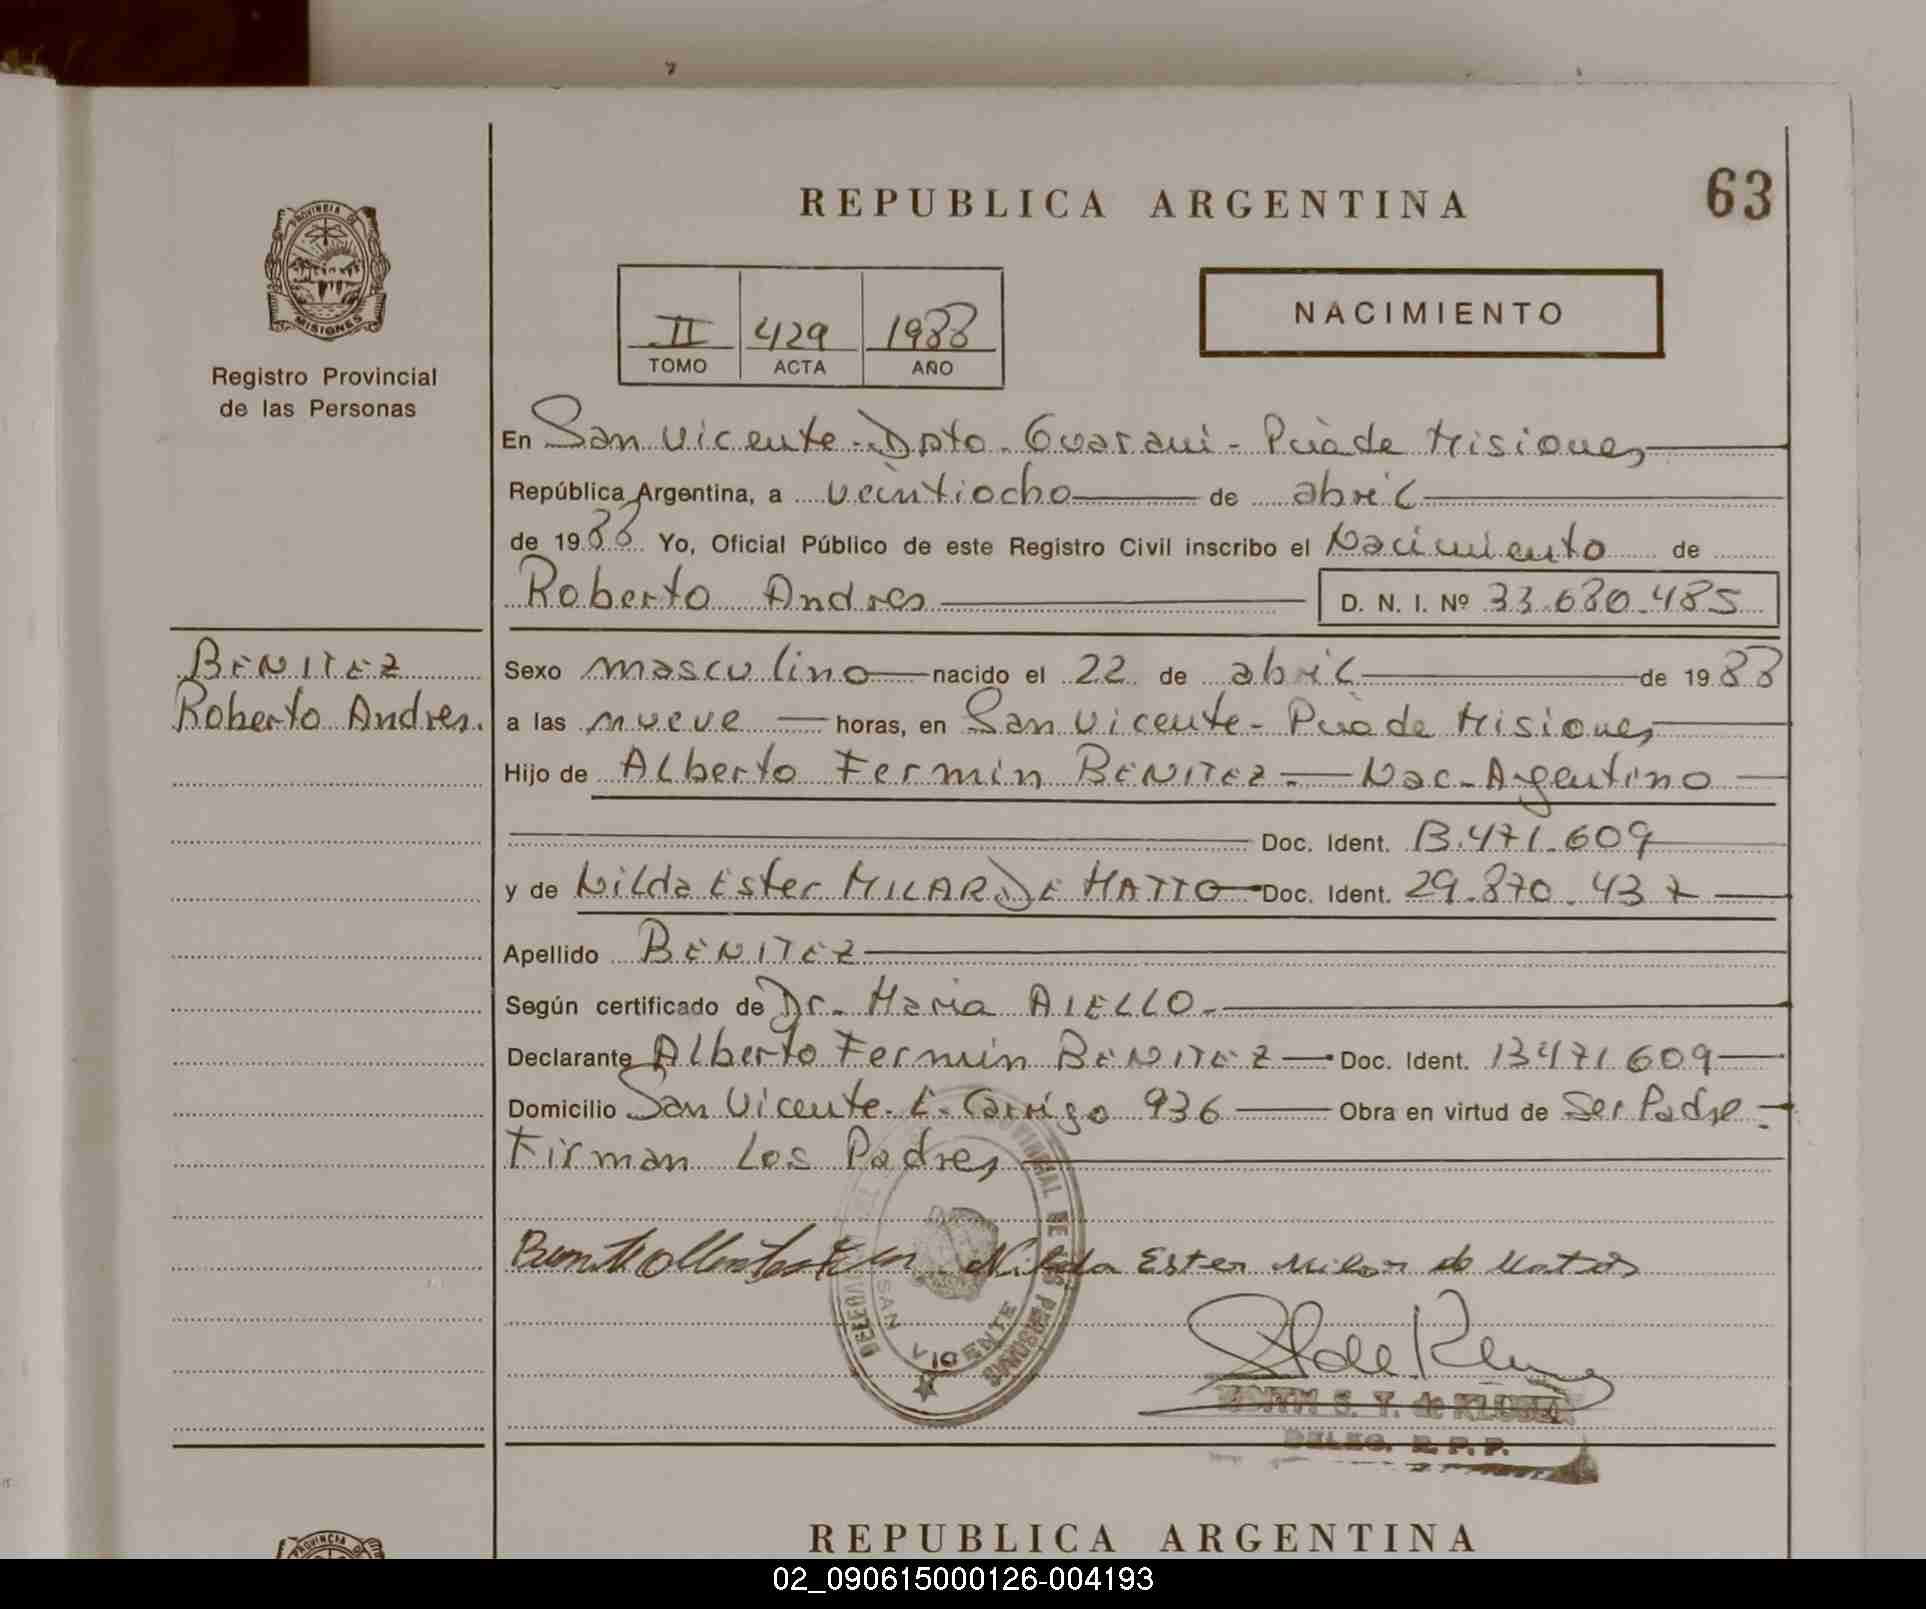 63
REPUBLICA ARGENTINA
PROVINCIA DE
MISIONES
Registro Provincial
de las Personas
II 429 1988
TOMO ACTA AÑO
NACIMIENTO
En San Vicente - Dpto. Guarani - Pcia de Misiones
República Argentina, a veintiocho de abril
de 1988 Yo, Oficial Público de este Registro Civil inscribo el Nacimiento de
Roberto Andres D. N. I. Nº 33.680.485
BENITEZ
Roberto Andres.
Sexo masculino nacido el 22 de abril de 1988
a las nueve horas, en San Vicente - Pcia de Misiones
Hijo de Alberto Fermin BENITEZ - Nac. Argentino
Doc. Ident. 13.471.609
y de Nilda Ester MILAR DE MATTO Doc. Ident. 29.870.437
Apellido BENITEZ
Según certificado de Dr. Maria AIELLO.
Declarante Alberto Fermin BENITEZ Doc. Ident. 13471609
Domicilio San Vicente. E. Carrigo 936 Obra en virtud de Ser Padre.
Firman Los Padres
Nilda Ester Milar de Matto
PROVINCIAL DE LAS PERSONAS
SAN VICENTE
EDITH S. T. de
DELEG. R. P. P.
REPUBLICA ARGENTINA
02_090615000126-004193